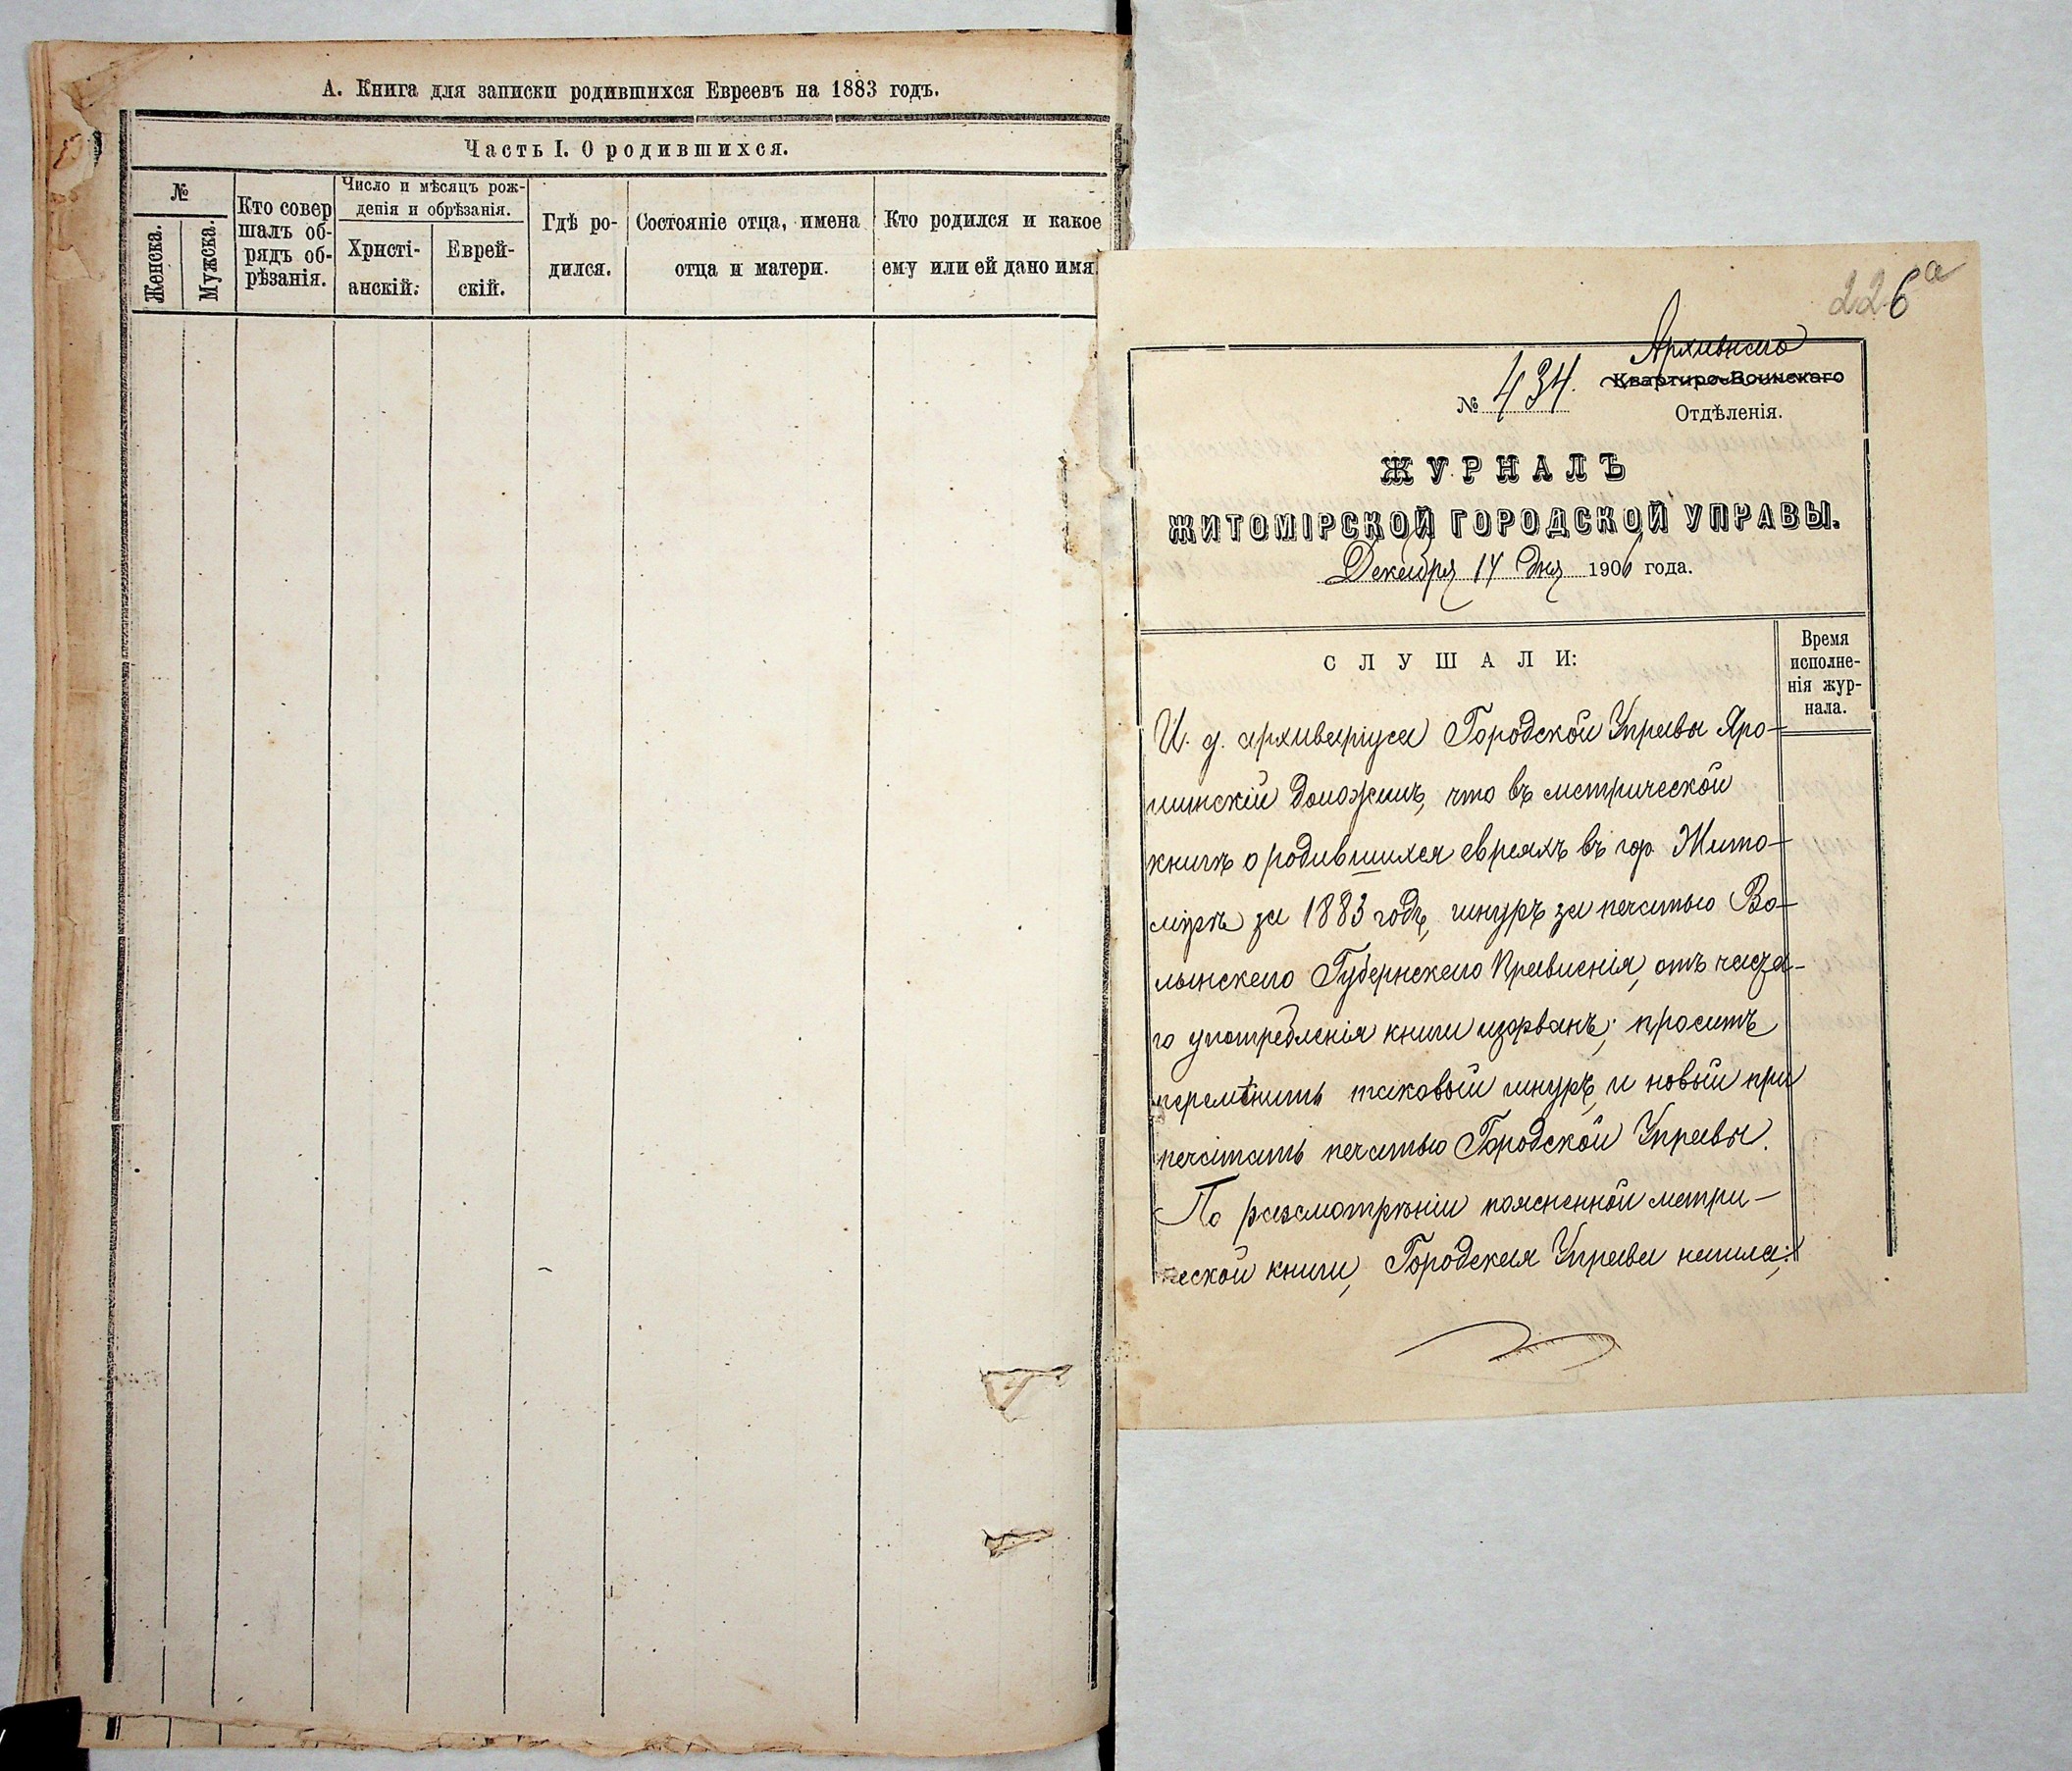 А. Книга для записки родившихся Евреевъ на 1883 годъ.
Часть I. О родившихся.
№
Женска.
Мужска.
Кто совер
шалъ об-
рядъ об-
рѣзанія.
Число и мѣсяцъ рож-
денія и обрѣзанія.
Христі-
анскій.
Еврей-
скій.
Гдѣ ро-
дился.
Состояніе отца, имена
отца и матери.
Кто родился и какое
ему или ей дано имя.
226а
Архивнаго
№ 434.
Квартиро-Воинскаго
Отдѣленія.
ЖУРНАЛЪ
ЖИТОМІРСКОЙ ГОРОДСКОЙ УПРАВЫ.
Декабря 14 дня 1906 года.
СЛУШАЛИ:
Время
исполне-
нія жур-
нала.
И. д. архиваріуса Городской Управы Яро-
шинскій доложилъ, что въ метрической
книгѣ о родившихся евреяхъ въ гор. Жито-
мірѣ за 1883 годъ, шнуръ за печатью Во-
лынскаго Губернскаго Правленія, отъ часта-
го употребленія книги изорванъ; проситъ
перемѣнить таковый шнуръ и новый при
печатать печатью Городской Управы.
По разсмотрѣніи поясненной метри-
ческой книги, Городская Управа нашла: